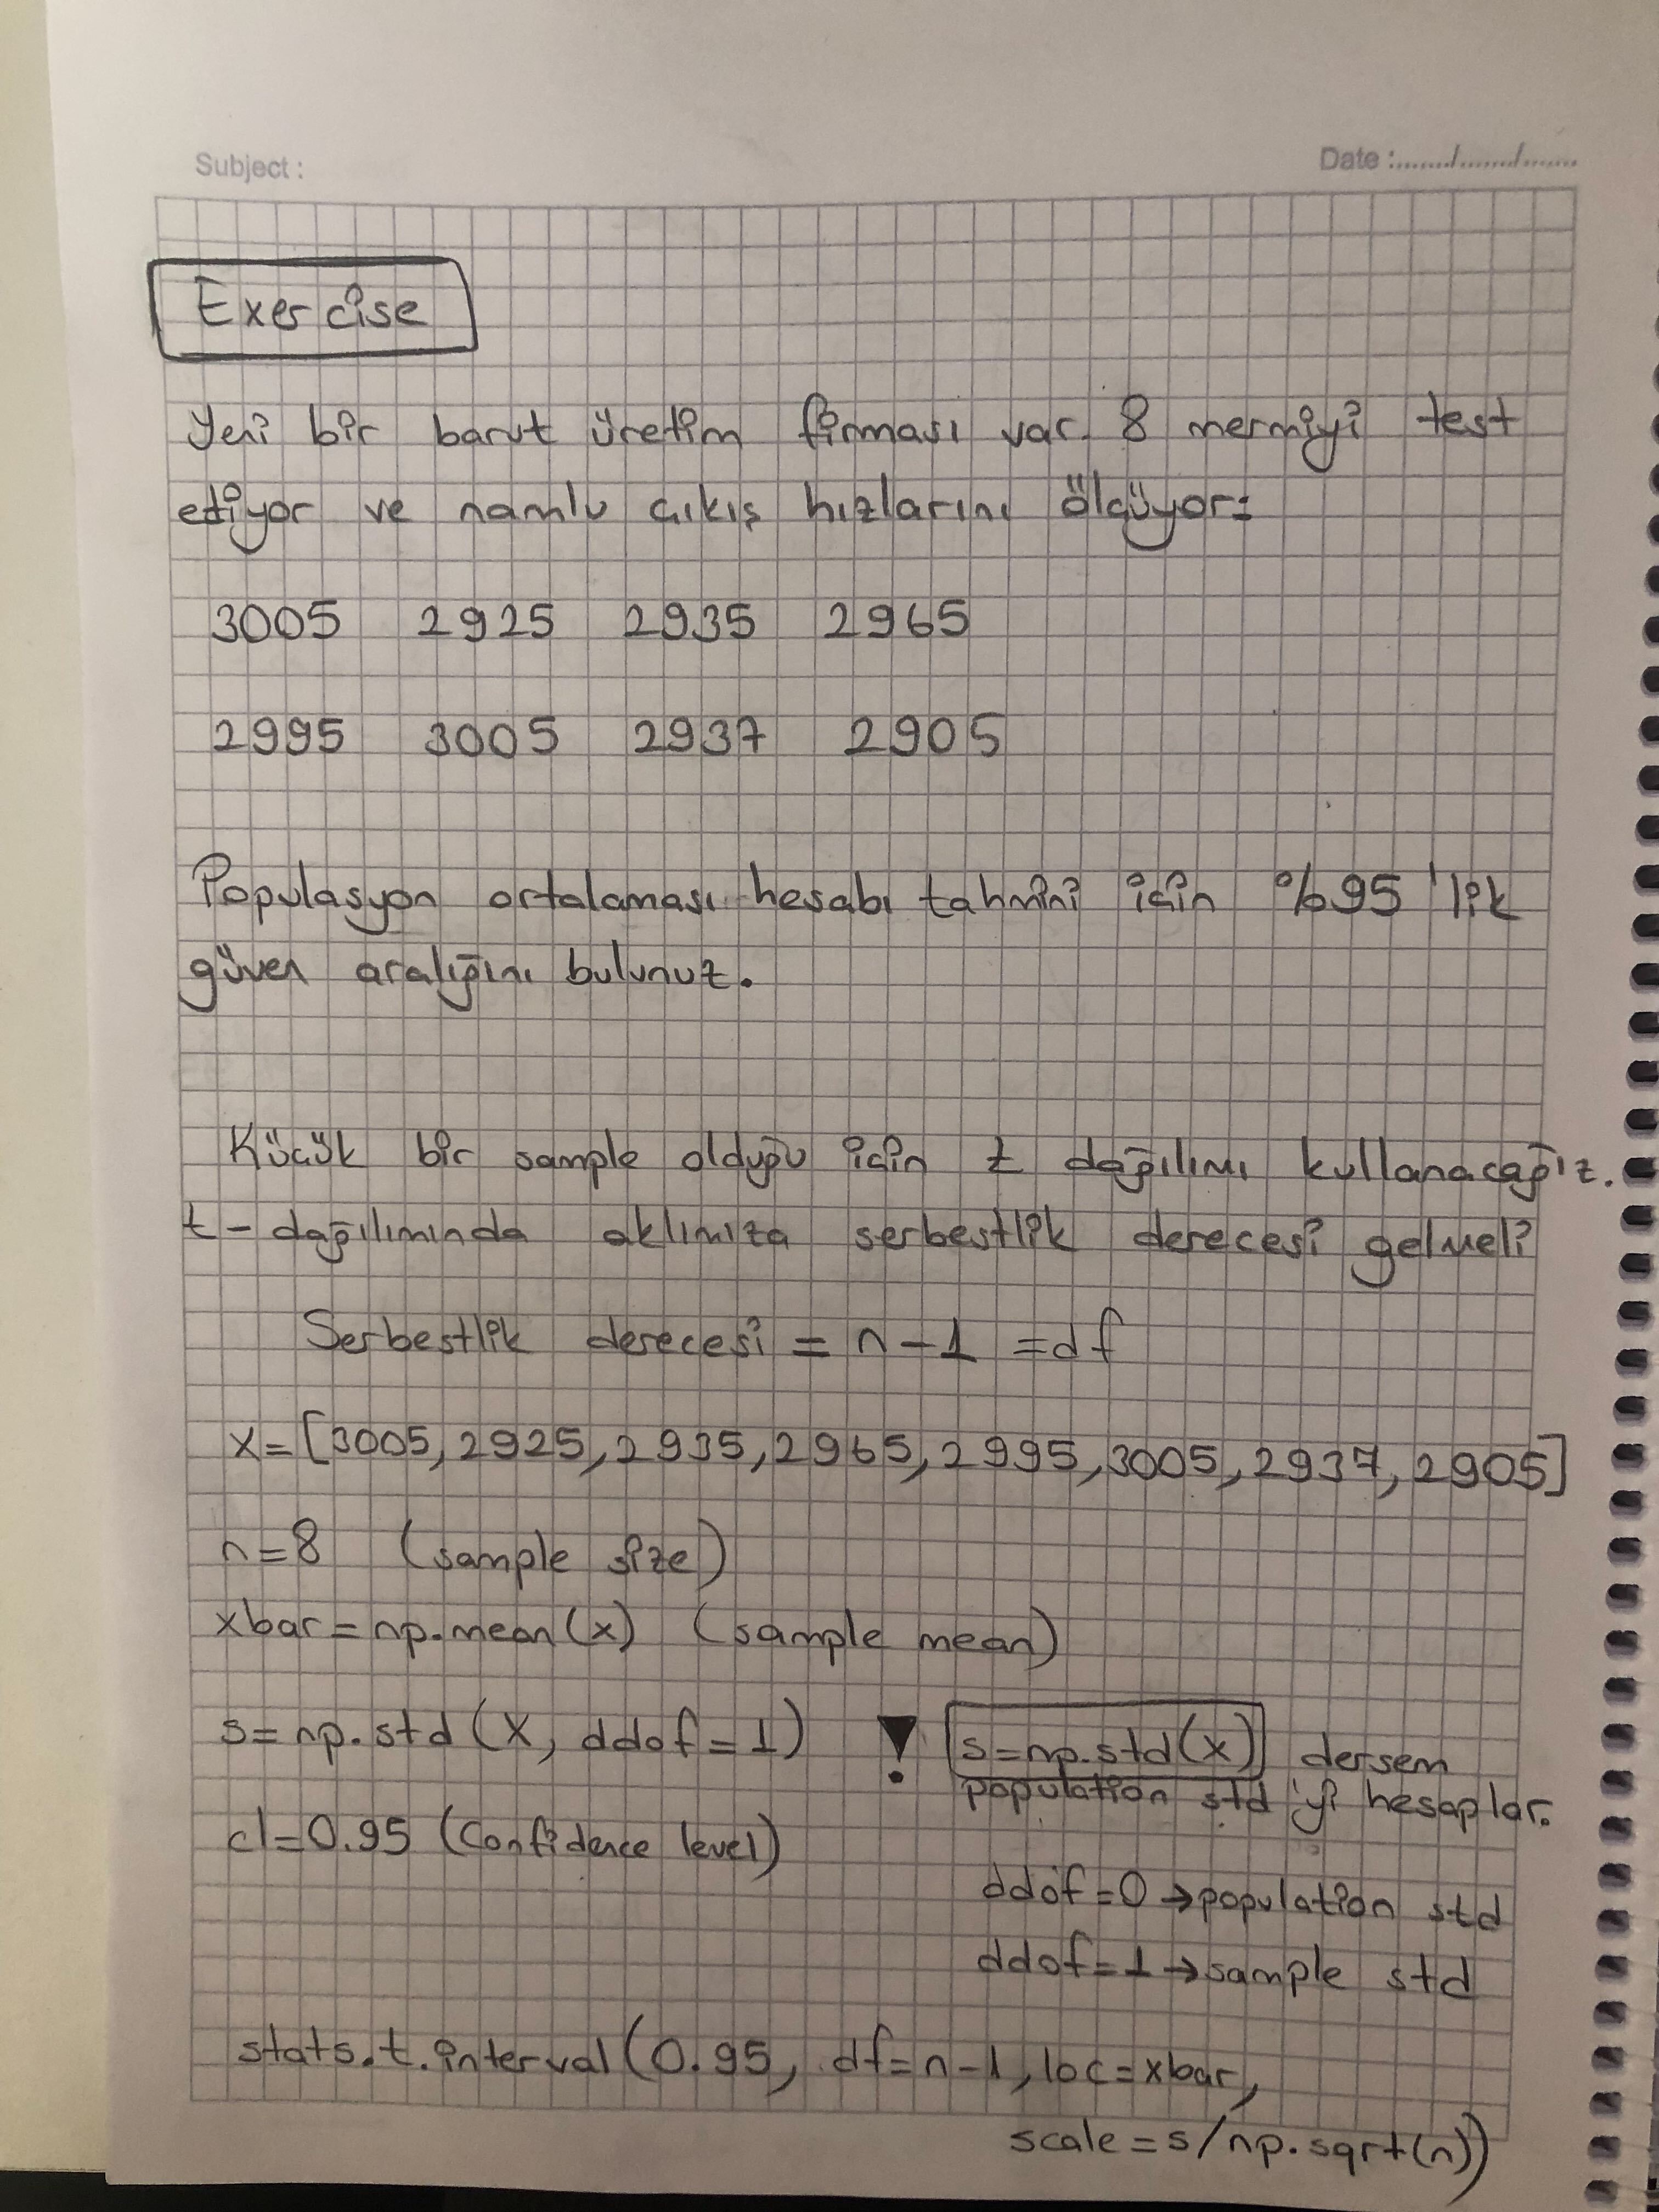 Subject :
Date :......./......./.......
Exercise
Yeni bir barut üretim firması var. 8 mermiyi test
ediyor ve namlu çıkış hızlarını ölçüyor:
3005 2925 2935 2965
2995 3005 2937 2905
Populasyon ortalaması hesabı tahmini için %95 'lik
güven aralığını bulunuz.
Küçük bir sample olduğu için t dağılımı kullanacağız.
t - dağılımında aklımıza serbestlik derecesi gelmeli
Serbestlik derecesi = n-1 = df
x = [3005, 2925, 2935, 2965, 2995, 3005, 2937, 2905]
n=8 (sample size)
xbar = np.mean(x) (sample mean)
s = np.std (X, ddof = 1) ! s=np.std(x) dersem
population std 'yi hesaplar.
cl=0.95 (Confidence level)
ddof = 0 → population std
ddof = 1 → sample std
stats.t.interval (0.95, df=n-1, loc=xbar,
scale = s/np.sqrt(n))